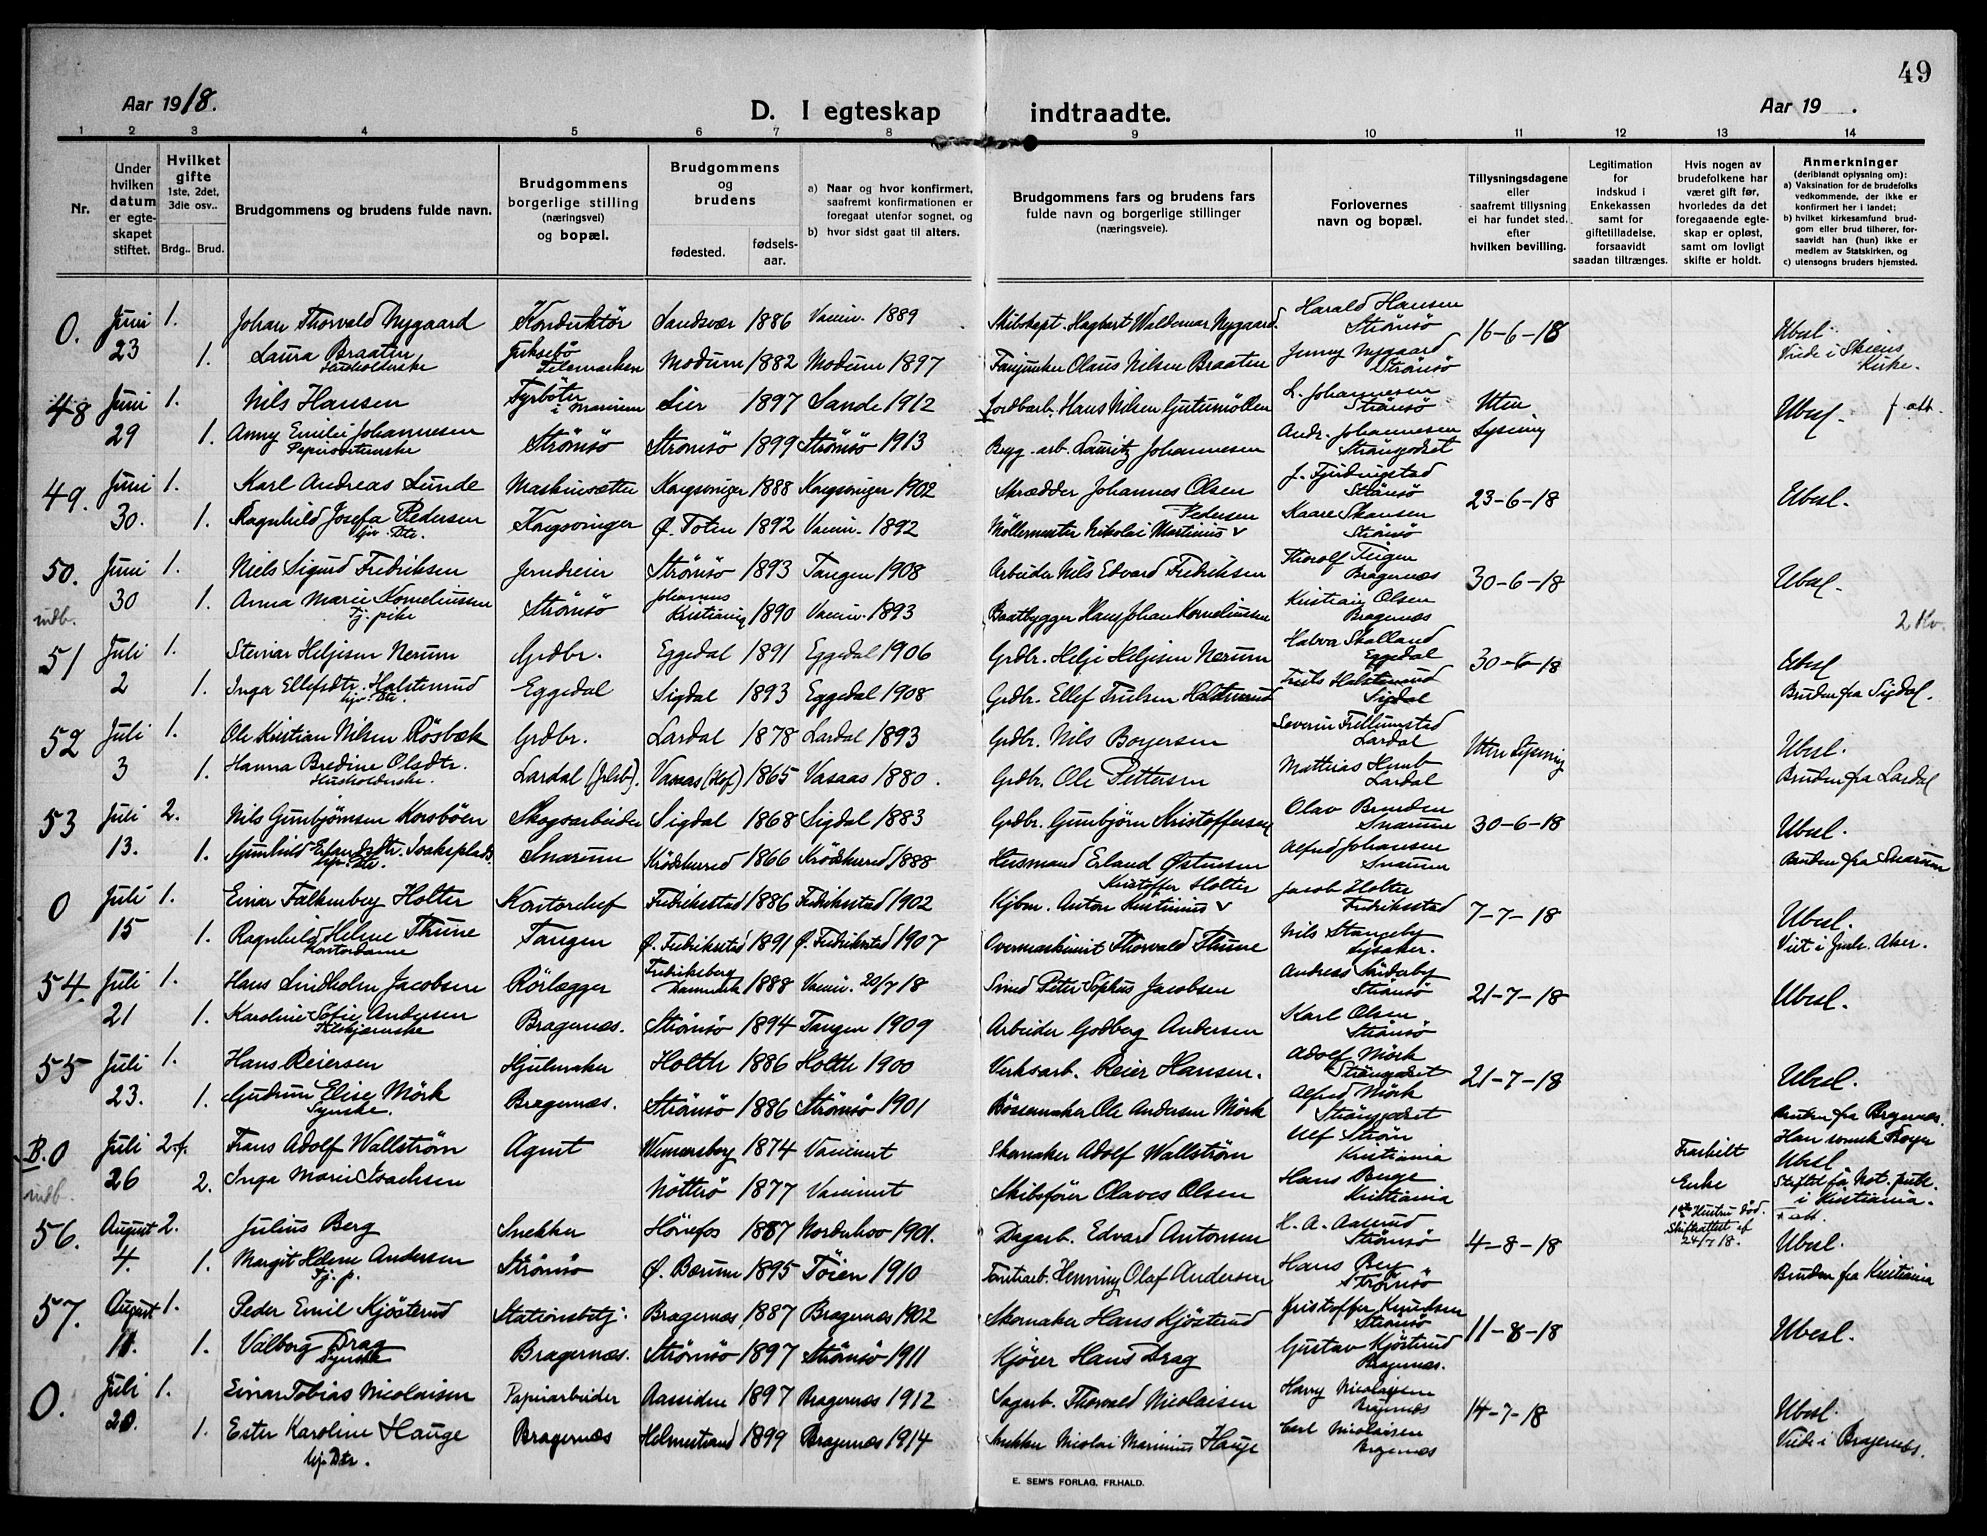 49
Aar 1918.
D. I egteskap indtraadte.
Aar 19 .
1 2 3 4 5 6 7 8 9 10 11 12 13 14
Nr.
Under hvilken datum er egte-skapet stiftet.
Hvilket gifte 1ste, 2det, 3die osv..
Brdg.. Brud.
Brudgommens og brudens fulde navn.
Brudgommens borgerlige stilling (næringsvei) og bopæl.
Brudgommens og brudens
fødested. fødsels-aar.
a) Naar og hvor konfirmert, saafremt konfirmationen er foregaat utenfor sognet, og
b) hvor sidst gaat til alters.
Brudgommens fars og brudens fars fulde navn og borgerlige stillinger (næringsveie).
Forlovernes navn og bopæl.
Tillysningsdagene eller saafremt tillysning ei har fundet sted, efter hvilken bevilling.
Legitimation for indskud i Enkekassen samt for giftetilladelse, forsaavidt saadan tiltrænges.
Hvis nogen av brudefolkene har været gift før, hvorledes da det foregaaende egte-skap er opløst, samt om lovligt skifte er holdt.
Anmerkninger (deriblandt oplysning om):
a) Vaksination for de brudefolks vedkommende, der ikke er konfirmert her i landet;
b) hvilket kirkesamfund brud-gom eller brud tilhører, for-saavidt han (hun) ikke er medlem av Statskirken, og
c) utensogns bruders hjemsted.
0. Juni 1. Johan Thorvald Nygaard Konduktör Sandsvær 1886 Vaccin. 1889 Skibskapt. Hagbart Waldemar Nygaard. Harald Hansen Strömsö 16-6-18 Ubesl.
23 1. Laura Braaten Husholderske Telemarken Modum 1882 Modum 1897 Fanjunker Claus Nilsen Braaten Jenny Nygaard Strömsö Viede i Skiens Kirke.
48 Juni 1. Nils Hansen Fyrböter i Marinen Lier 1897 Sande 1912 Jordbarb. Hans Nilsen L. Johannesen Strömsö Uten Ubesl. f. att.
29 1. Anny Emilie Johannesen Strömsö Strömsö 1899 Strömsö 1913 Bryg. arb. Lauritz Johannesen Andr. Johannesen Strömsgodset Lysning
49. Juni 1. Karl Andreas Lunde Maskinsætter Kongsvinger 1888 Kongsvinger 1902 Skrædder Johannes Olsen J. Fjerdingstad Strömsö 23-6-18 Ubesl.
30. 1. Ragnhild Josefa Pedersen Hjv. Dtr. Kongsvinger Ø. Toten 1892 Vaccin. 1892 Möllermester Nikolai Martinius Pedersen Kaare Skansen Strömsö
50. Juni 1. Niels Sigurd Fredriksen Jerndreier Strömsö 1893 Tangen 1908 Arbeider Nils Edvard Fredriksen Thorolf Teigen Bragernæs 30-6-18 Ubesl.
indb. 30 1. Anna Marie Korneliussen Tj. pike Strömsö Johannes Kristiania 1890 Vaccin. 1893 Baatbygger Hans Johan Korneliussen Kristian Olsen Bragernæs 2 Kv.
51 Juli 1. Steinar Heljesen Nerum Grdbr. Eggedal 1891 Eggedal 1906 Grdbr. Helje Heljesen Nerum Halvor Skalland Eggedal 30-6-18 Ubesl.
2 1. Inga Ellefsdtr. Halstenrud Hjv. Dtr. Eggedal Sigdal 1893 Eggedal 1908 Grdbr. Ellef Trulsen Halstenrud Truls Halstenrud Sigdal Bruden fra Sigdal.
52 Juli 1. Ole Kristian Nilsen Rösbæk Grdbr. Lardal 1878 Lardal 1893 Grdbr. Nils Boyersen Severin Lardal Uten Lysning Ubesl.
3 1. Hanna Bredine Olsdtr. Husholderske. Lardal (Jrlsb). Vassas (Hof) 1865 Vasaas 1880. Grdbr. Ole Pettersen Mathias Lardal Bruden fra Lardal
53 Juli 2. Nils Gunbjørnsen Korsbøen Skogsarbeider Sigdal 1868 Sigdal 1883 Grdbr. Gunbjørn Kristoffersen Olav Snarum 30-6-18 Ubesl.
13. 1. Gunhild Erlandsdtr. Isaksplads Hjv. Dtr. Snarum Krödshered 1866 Krödshered 1888 Husmand Erland Østensen Alfred Johansen Snarum Bruden fra Snarum
0 Juli 1. Einar Falkenberg Holter Kontorchef Fredriksstad 1886 Fredriksstad 1902 Kjbm. Anton Kristinius Kristoffer Holter Jacob Holter Fredriksstad 7-7-18 Ubesl.
15 1. Ragnhild Helene Thune Kontordame Tangen Ø. Fredriksstad 1891 Ø. Fredriksstad 1907 Overmaskinist Thorvald Thune Nils Stangeby Lysaker. Viet i Aker.
54. Juli 1. Hans Lindholm Jacobsen Rörlægger Fredriksberg Danmark 1888 Vaccin. 20/7 18 Smed Peter Sophus Jacobsen Andreas Söderby Strömsö 21-7-18 Ubesl.
21 1. Karoline Sofie Andersen Bragernæs. Strömsö 1894 Tangen 1909 Arbeider Godberg Andersen Karl Olsen Strömsö
55 Juli 1. Hans Reiersen Hjulmaker Holthe 1886 Holtlh 1900 Verksarb. Reier Hansen. Adolf Mörk Strömsgodset 21-7-18 Ubesl.
23. 1. Gudrun Elise Mörk Syerske. Bragernæs. Strömsö 1886 Strömsö 1901 Bössemaker Ole Andersen Mörk Alfred Mörk Strömsgodset Bruden fra Bragernæs.
B.0 Juli 2.f. Frans Adolf Wallström Agent Wennersborg 1874 Vaccinert Skomaker Adolf Wallström Ulf Ström Kristiania Fraskilt Han svensk Borger Ubesl.
indb. 26 2. Inga Marie Isachsen Nötterö 1877 Vaccinert Skibsfører Olaves Olsen Hans Bruge Kristiania Enke Stiftet for Not. publ. i Kristiania.
56. August 2. Julius Berg Snekker Hönefos 1887 Norderhov 1901. Dagarb. Edvard Antonsen H. A. Aasrud Strömsö 4-8-18 1ste Hustru död. Skifteattest af 24/7 18. Ubesl. f att.
4. 1. Margit Helene Andersen Tj. p. Strömsö Ø. Bærum 1895 Töien 1910 Tomtearb. Henning Olaf Andersen Hans Berg Strömsö Bruden fra Kristiania
57. August 1. Peder Emil Kjösterud Stationsbetj. Bragernæs 1887 Bragernæs 1902 Skomaker Hans Kjösterud Kristoffer Knudsen Strömsö 11-8-18 Ubesl.
11. 1. Valborg Drag Syerske Bragernæs. Strömsö 1897 Strömsö 1911 Kjörer Hans Drag Gustav Kjösterud Bragernæs.
0. Juli 1. Einar Tobias Nicolaisen Papirarbeider Aassiden 1897 Bragernæs 1912 Sagarb. Thorvald Nicolaisen Harry Nicolaisen Bragernæs 14-7-18 Ubesl.
20. 1. Ester Karoline Hauge Hjv. Dtr. Bragernæs Holmestrand 1899 Bragernæs 1914 Snekker Nicolai Marinius Hauge Carl Nicolaisen Bragernæs Viede i Bragernæs.
E. SEM'S FORLAG. FR.HALD.